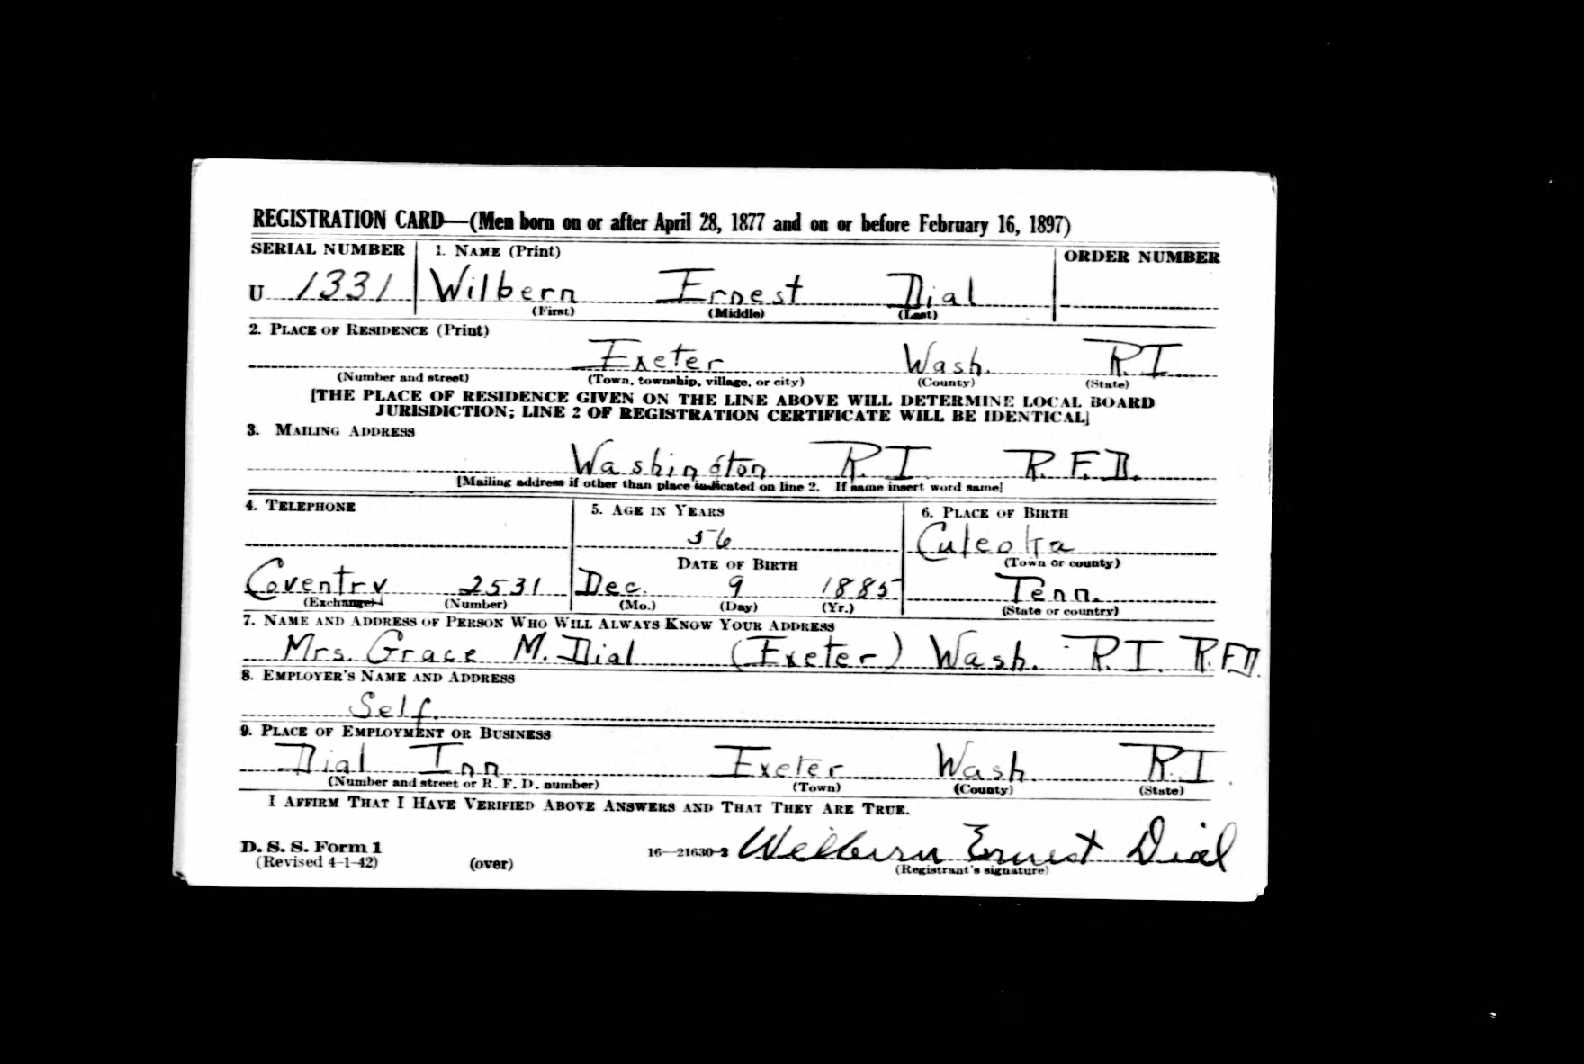 REGISTRATION CARD—(Men born on or after April 28, 1877 and on or before February 16, 1897)
SERIAL NUMBER 1. NAME (Print) ORDER NUMBER
U 1331 Wilbern Ernest Dial
(First) (Middle) (Last)
2. PLACE OF RESIDENCE (Print)
Exeter Wash. R.I.
(Number and street) (Town, township, village, or city) (County) (State)
[THE PLACE OF RESIDENCE GIVEN ON THE LINE ABOVE WILL DETERMINE LOCAL BOARD
JURISDICTION; LINE 2 OF REGISTRATION CERTIFICATE WILL BE IDENTICAL]
3. MAILING ADDRESS
Washington R.I. R.F.D.
[Mailing address if other than place indicated on line 2. If same insert word same]
4. TELEPHONE 5. AGE IN YEARS 6. PLACE OF BIRTH
56 Culeoka
DATE OF BIRTH (Town or county)
Coventry 2531 Dec. 9 1885 Tenn.
(Exchange) (Number) (Mo.) (Day) (Yr.) (State or country)
7. NAME AND ADDRESS OF PERSON WHO WILL ALWAYS KNOW YOUR ADDRESS
Mrs. Grace M. Dial (Exeter) Wash. R.I. R.F.D.
8. EMPLOYER'S NAME AND ADDRESS
Self.
9. PLACE OF EMPLOYMENT OR BUSINESS
Dial Inn Exeter Wash. R.I.
(Number and street or R. F. D. number) (Town) (County) (State)
I AFFIRM THAT I HAVE VERIFIED ABOVE ANSWERS AND THAT THEY ARE TRUE.
D. S. S. Form 1
(Revised 4-1-42) (over) 16—21630-2 Wilburn Ernest Dial
(Registrant's signature)